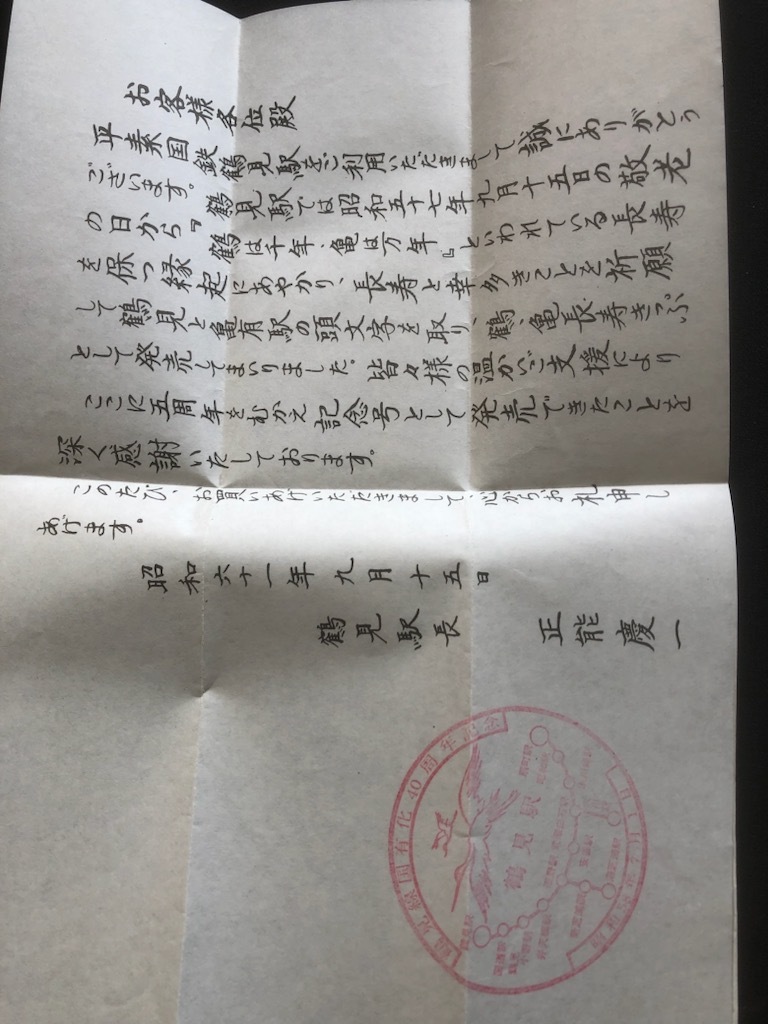 お客様各位殿
平素国鉄鶴見駅をご利用いただきまして誠にありがとう
ございます。
鶴見駅では昭和五十七年九月十五日の敬老
の日から『鶴は千年、亀は万年』といわれている長寿
を保つ縁起にあやかり、長寿と幸多きことを祈願
して鶴見と亀有駅の頭文字を取り、鶴、亀長寿きっぷ
として発売してまいりました。皆々様の温かいご支援により
ここに五周年をむかえ記念号として発売できたことを
深く感謝いたしております。
このたび、お買いあげいただきまして、心からお礼申し
あげます。
昭和六十一年九月十五日
鶴見駅長 正能慶一
鶴見線国有化40周年記念
鶴見駅